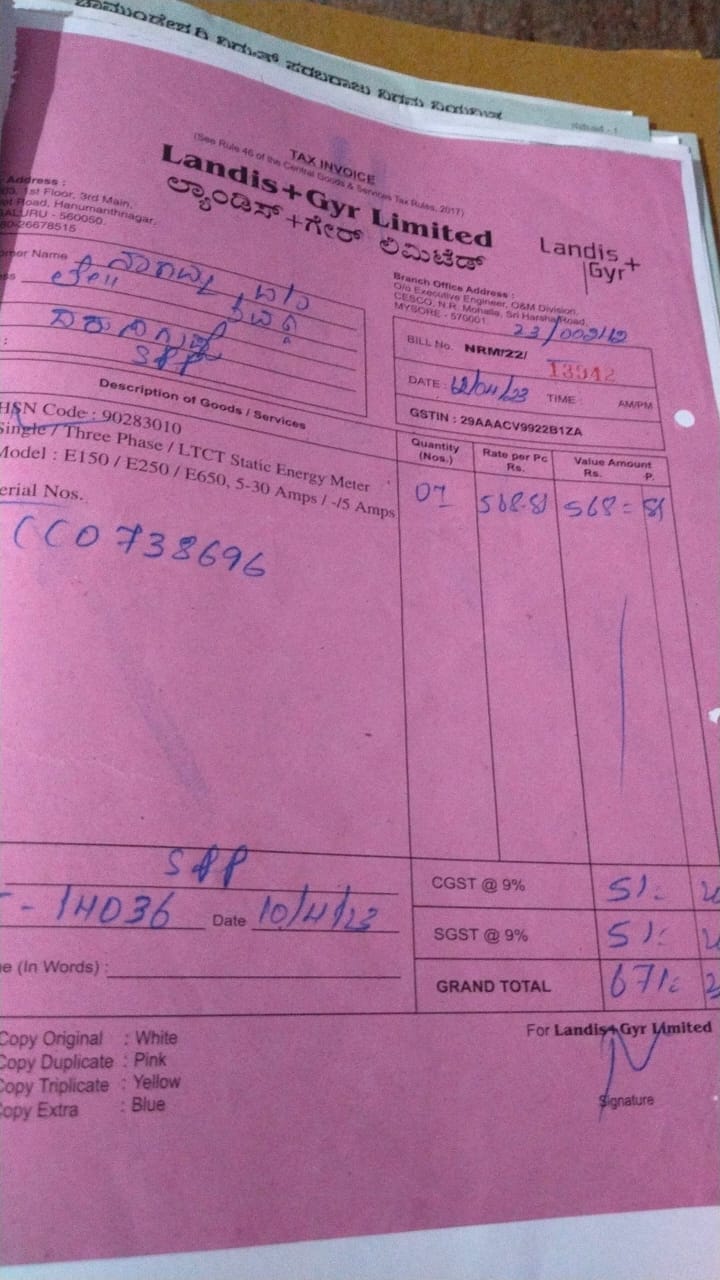 ಚಾಮುಂಡೇಶ್ವರಿ ವಿದ್ಯುತ್ ಸರಬರಾಜು ನಿಗಮ ನಿಯಮಿತ
TAX INVOICE
(See Rule 46 of the Central Goods & Services Tax Rules, 2017)
Landis+Gyr Limited
ಲ್ಯಾಂಡಿಸ್+ಗೇರ್ ಲಿಮಿಟೆಡ್
Landis+
Gyr
Address :
1st Floor, 3rd Main,
Road, Hanumanthnagar,
ALURU - 560050.
80-26678515
omer Name
ess
Branch Office Address :
O/o Executive Engineer, O&M Division,
CESCO, N.R. Mohalla, Sri Harsha Road,
MYSORE - 570001
BILL No. NRM/22/ 13942
DATE : 12/04/23 TIME : AM/PM
GSTIN : 29AAACV9922B1ZA
SPP
Description of Goods / Services
Quantity (Nos.)
Rate per Pc Rs.
Value Amount Rs. P.
HSN Code : 90283010
Single / Three Phase / LTCT Static Energy Meter
Model : E150 / E250 / E650, 5-30 Amps / -/5 Amps
01 568.81 568 = 81
erial Nos.
CCO738696
SPP
- 14036 Date 10/4/23
e (In Words) :
CGST @ 9% 51
SGST @ 9% 51
GRAND TOTAL 671
Copy Original : White
Copy Duplicate : Pink
Copy Triplicate : Yellow
Copy Extra : Blue
For Landis+Gyr Limited
Signature